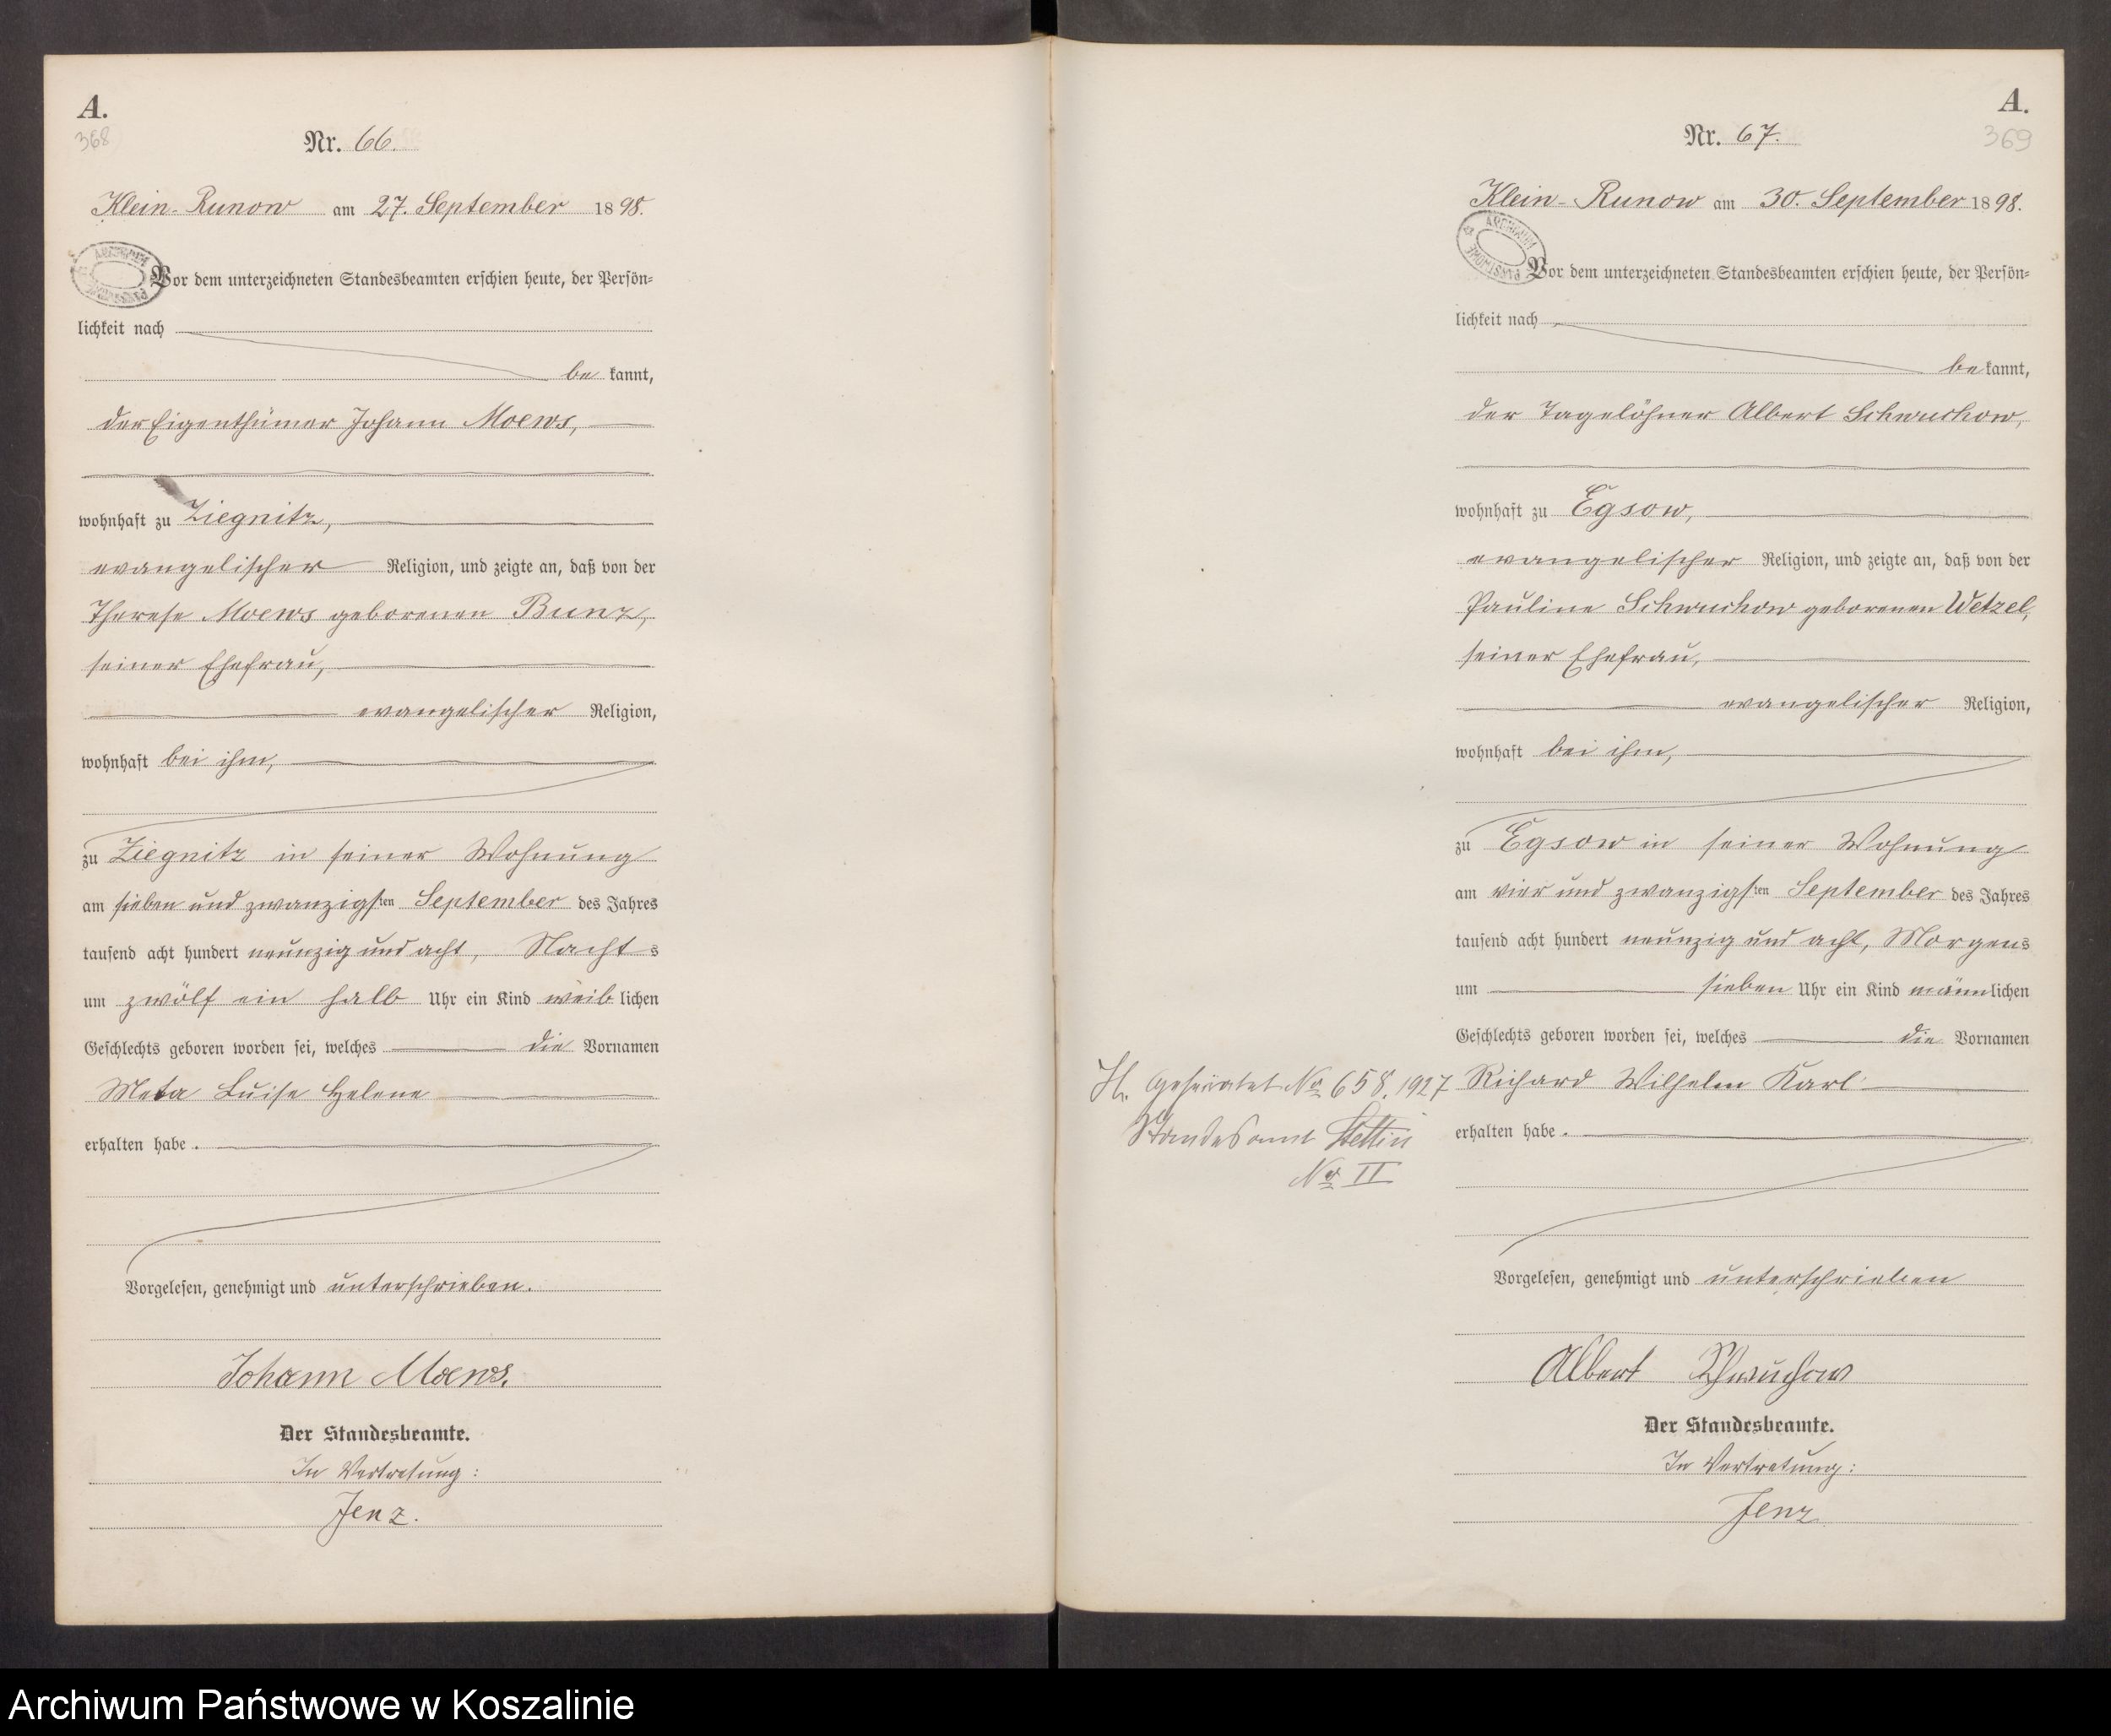 A.
368
Nr. 66.
Klein-Runow am 27. September 1898.
Vor dem unterzeichneten Standesbeamten erschien heute, der Persön=
lichkeit nach
be kannt,
der Eigenthümer Johann Moews,
wohnhaft zu Ziegnitz,
evangelischer Religion, und zeigte an, daß von der
Therese Moews geborenen Bunz,
seiner Ehefrau,
evangelischer Religion,
wohnhaft bei ihm,
zu Ziegnitz in seiner Wohnung
am sieben und zwanzigsten September des Jahres
tausend acht hundert neunzig und acht, Nachts
um zwölf ein halb Uhr ein Kind weiblichen
Geschlechts geboren worden sei, welches die Vornamen
Meta Luise Helene
erhalten habe.
Vorgelesen, genehmigt und unterschrieben.
Johann Moews.
Der Standesbeamte.
In Vertretung:
Jenz.
A.
369
Nr. 67.
Klein-Runow am 30. September 1898.
ARCHIWUM PAŃSTWOWE
Vor dem unterzeichneten Standesbeamten erschien heute, der Persön=
lichkeit nach
bekannt,
der Tagelöhner Albert Schwuchow,
wohnhaft zu Egsow,
evangelischer Religion, und zeigte an, daß von der
Pauline Schwuchow geborenen Wetzel,
seiner Ehefrau,
evangelischer Religion,
wohnhaft bei ihm,
zu Egsow in seiner Wohnung
am vier und zwanzigsten September des Jahres
tausend acht hundert neunzig und acht, Morgens
um sieben Uhr ein Kind männlichen
Geschlechts geboren worden sei, welches die Vornamen
Richard Wilhelm Karl
erhalten habe.
Geheiratet No 658. 1927
Standesamt Stettin
No II
Vorgelesen, genehmigt und unterschrieben
Albert Schwuchow
Der Standesbeamte.
In Vertretung:
Jenz
Archiwum Państwowe w Koszalinie